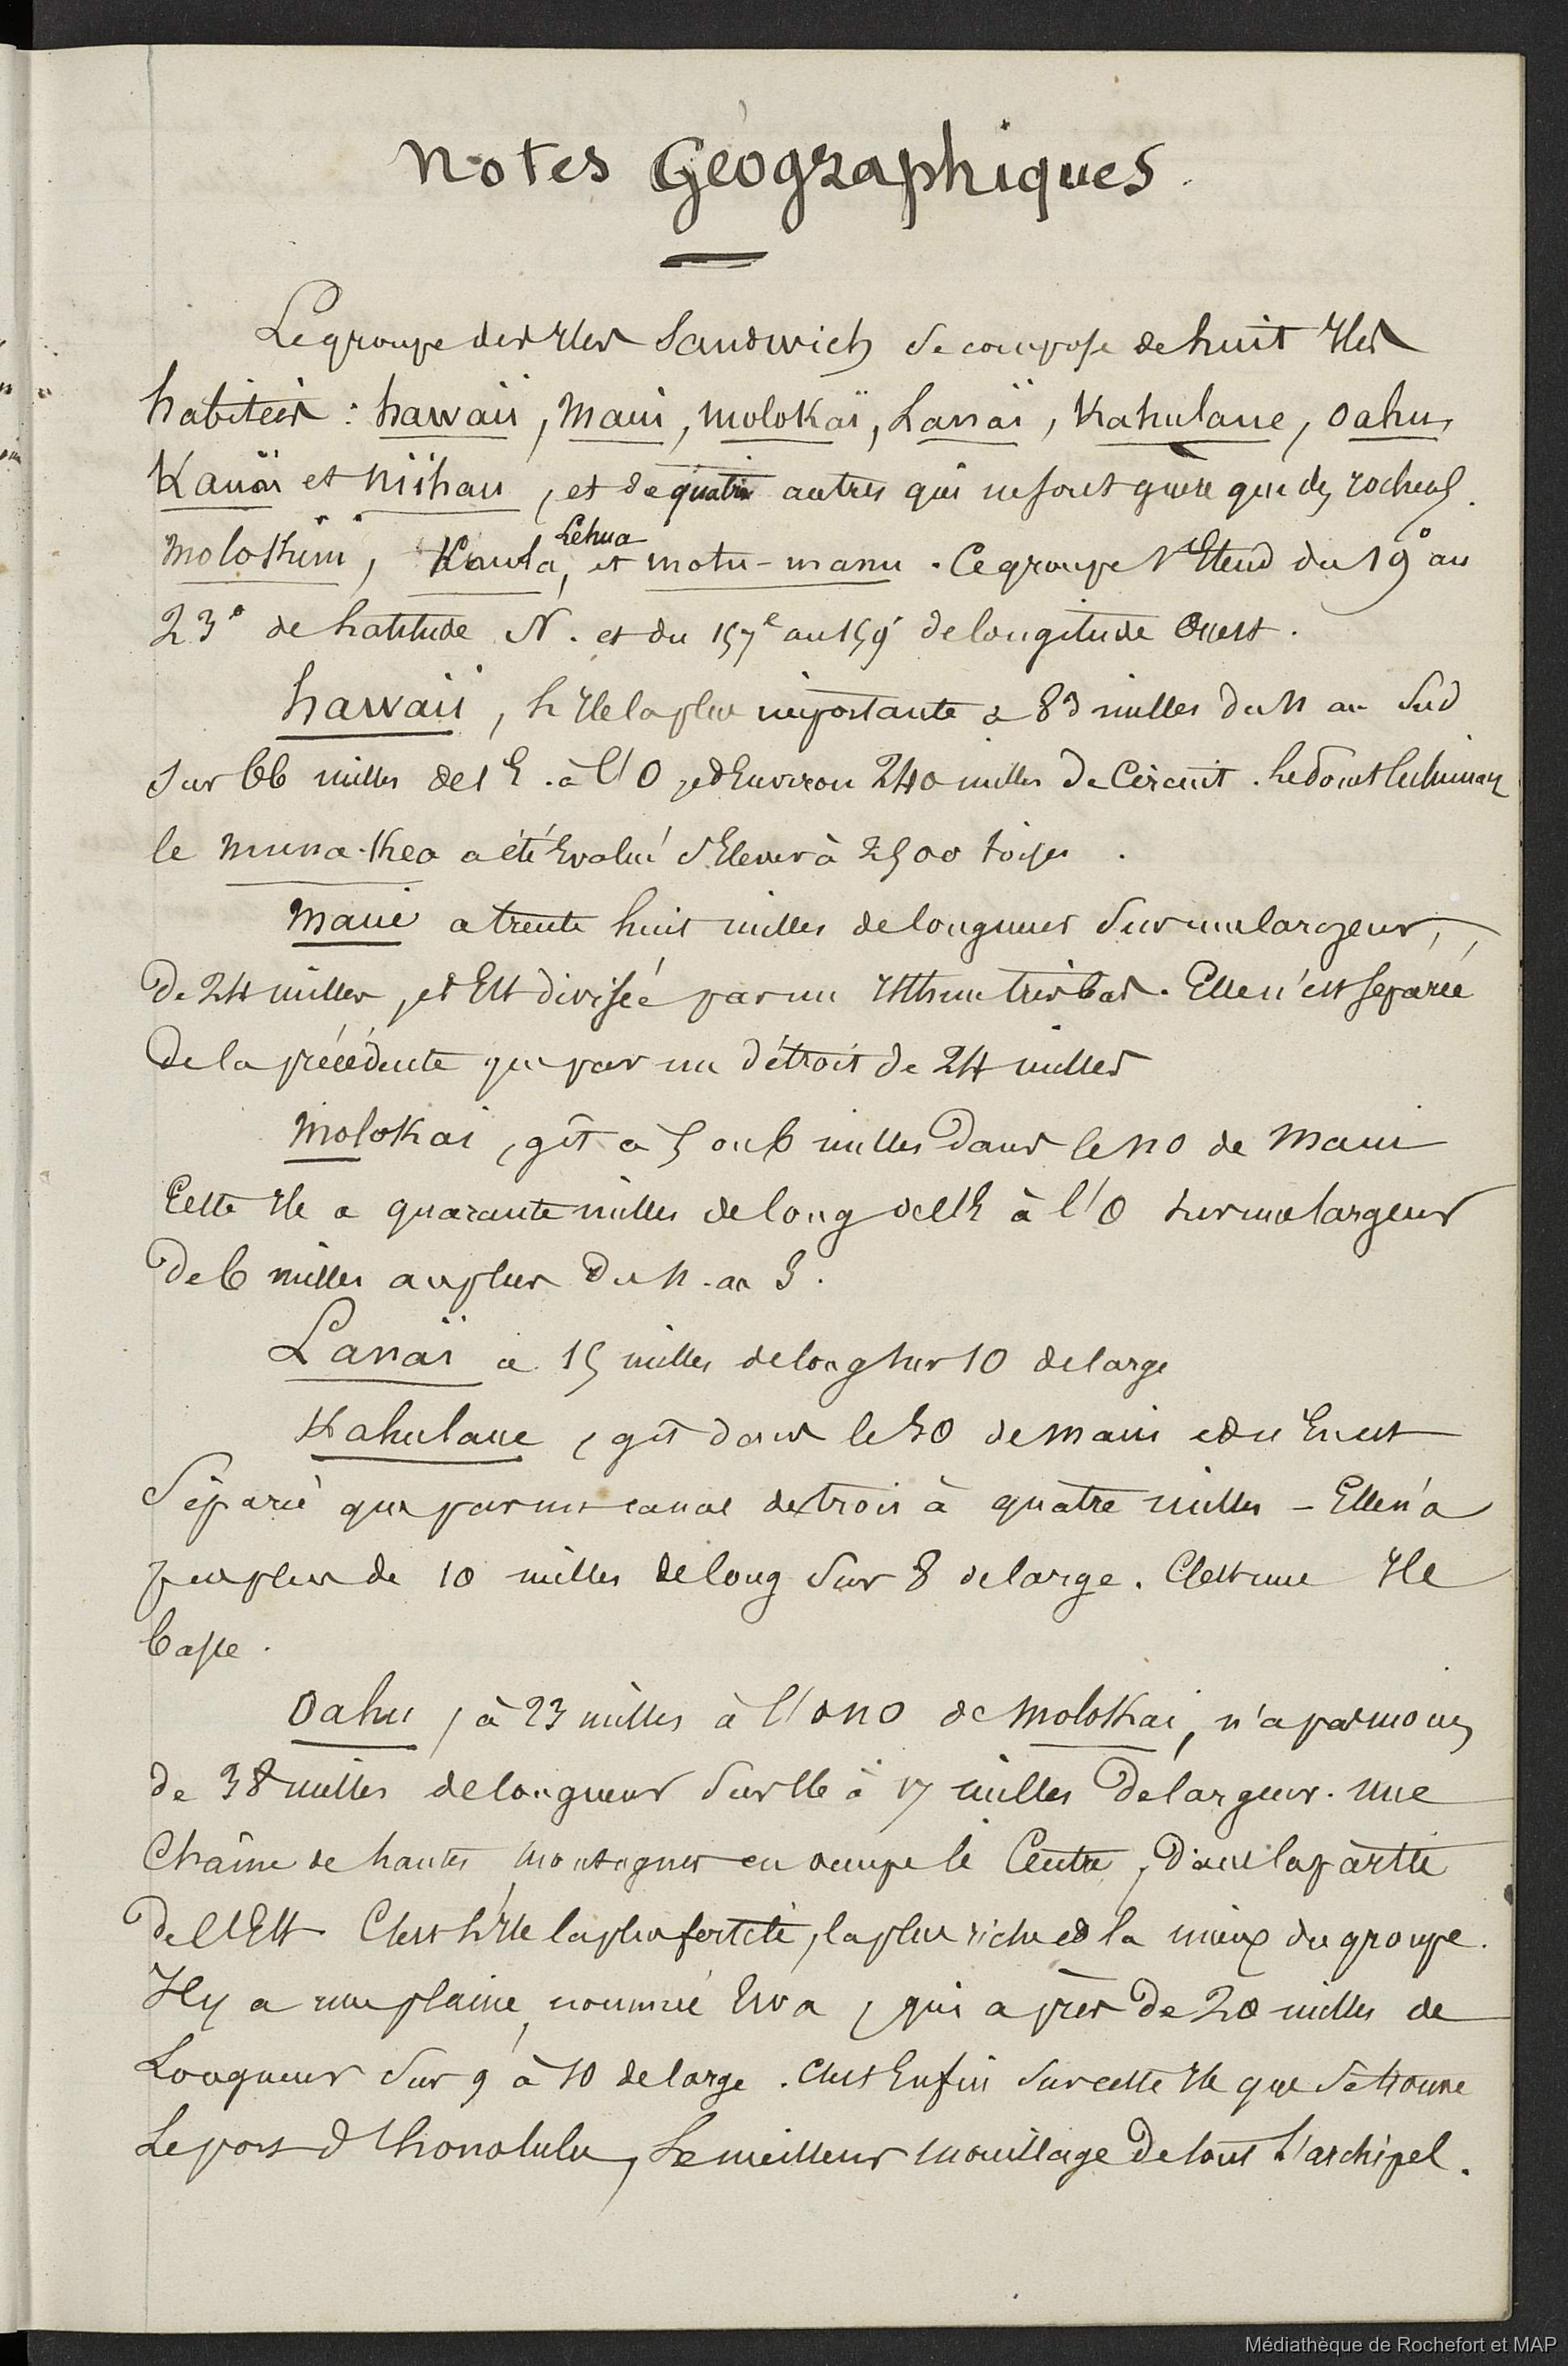 Notes Géographiques.
Le groupe des Iles Sandwich se compose de huit Iles
habitées : hawaii, Maui, Molokaï, Lanaï, Kahulaue, Oahu,
Kauaï et Niihau, et de quatre autres qui ne sont guère que des rochers.
Molokini, Kaula, Lehua et motu-manu. Ce groupe s'Etend du 19° au
23° de Latitude N. et du 157e au 159 de longitude Ouest.
hawaii, L'Ile la plus importante a 83 milles du N au Sud
sur 66 milles de l'E. à l'O, et d'Environ 240 milles de Circuit. Le
le Muna-Kea a été Evalué s'Elever à 2500 toises.
Maui a trente huit milles de longueur sur une largeur,
De 24 milles, et Est divisée par un Isthme très bas. Elle n'est séparée
De la précédente que par un détroit de 24 milles
Molokai, gît à 5 ou 6 milles Dans le NO de Maui
Cette Ile a quarante milles de long de l'E à l'O sur une largeur
De 6 milles au plus Du N. au S.
Lanaï a 15 milles de long sur 10 de large
Kahulaue, gît dans le SO de Maui et n'En est
Séparé que par un canal de trois à quatre milles - Elle n'a
pas plus de 10 milles de long sur 8 de large. C'est une Ile
basse.
Oahu, à 23 milles à l'ONO de Molokai, n'a pas moins
de 38 milles de longueur sur 16 à 17 milles De largeur. une
Chaîne de hautes montagnes en occupe le Centre, Dans la partie
De l'Est C'est L'Ile la plus fertile, la plus riche et la mieux du groupe.
Il y a une plaine, nommée Ewa, qui a près De 20 milles de
Longueur sur 9 à 10 de large. C'est Enfin sur cette Ile que se trouve
Le port d'honolulu, Le meilleur mouillage De tout L'archipel.
Médiathèque de Rochefort et MAP